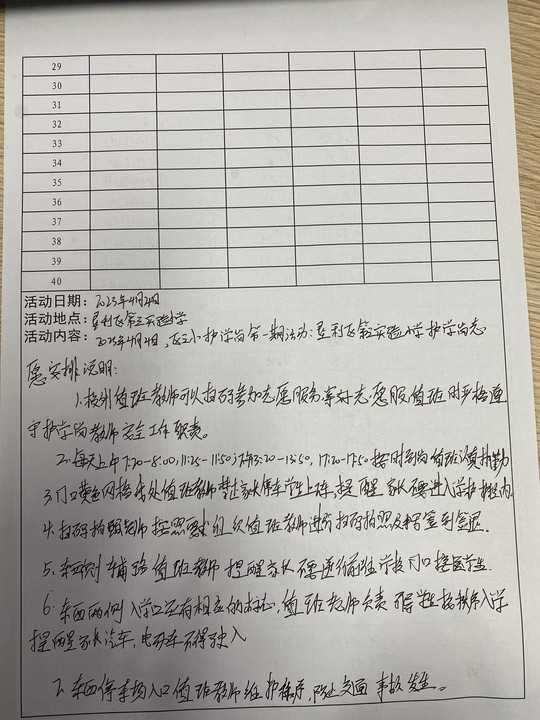 29
30
31
32
33
34
35
36
37
38
39
40
活动日期：2023年4月24日
活动地点：垦利区第三实验小学
活动内容：2023年4月24日，区三小护学岗第一期活动：垦利区第三实验小学护学岗志
愿安排说明：
1.校级值班教师可以扫码参加志愿服务，穿好志愿服，值班时严格遵
守护学岗教师安全工作职责。
2.每天上午7:20-8:00,11:25-11:50；下午13:20-13:50, 17:20-17:50按时到岗值班认真执勤
3.门口黄色网格线处值班教师禁止家长停车学生上车，提醒家长不要进入学护校区内
4.扫码拍照教师按照要求组织值班教师进行扫码拍照及书写签到签退.
5.东西侧辅路值班教师提醒家长不要逆行前往学校门口接送学生.
6.东西两侧入学口还有相应的标志,值班老师负责学生按秩序入学
提醒家长汽车,电动车不得驶入
7.东西停车场入口值班教师维护秩序,防止交通事故发生。